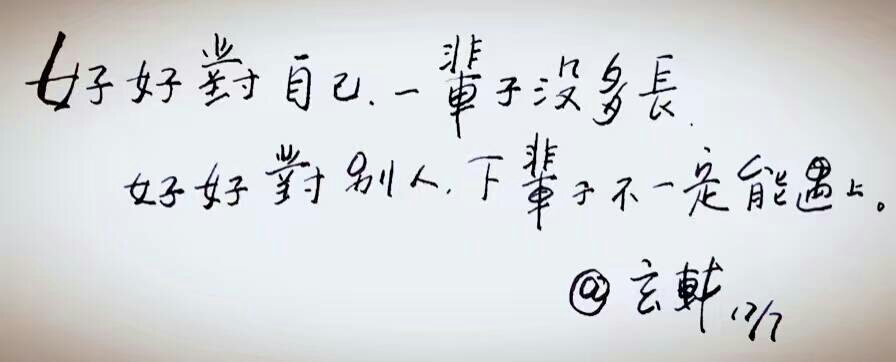 好好對自己.一輩子没多長.
好好對别人.下輩子不一定能遇上。
@玄軒 12/7